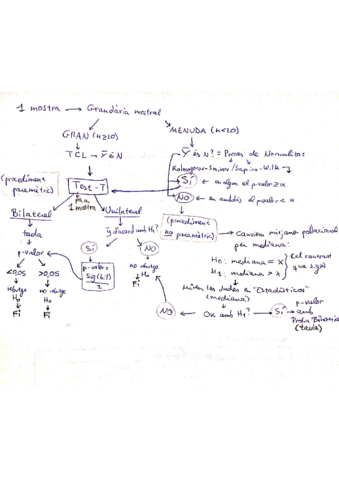 1 mostra → Grandària mostral
GRAN (n≥20)
MENUDA (n<20)
TCL → Ȳ és N
Ȳ és N? = Proves de Normalitat
Kolmogorov-Smirnov/Sapiro-Wilk
(procediment paramètric)
Test-T
per a 1 mostra
Sí ← en algun el p-valor ≥ α
NO ← en ambdós el p-valor < α
Bilateral
Unilateral
(procediment no paramètric)
→ Canviem mitjana poblacional
per mediana:
taula
Ȳ d'acord amb H₁?
p-valor
Sí
NO
H₀: mediana = x
H₁: mediana > x
(el contrast que sigui)
<0,05
>0,05
p-valor = Sig(b.)/2
no rebutge H₀
Fi
rebutge H₀
no rebutge H₀
Fi
Fi
Mirem les dades a "Estadísticos"
(mediana)
NO ← Ȯx amb H₁? → Sí
p-valor
amb
Prova Binomial
(taula)